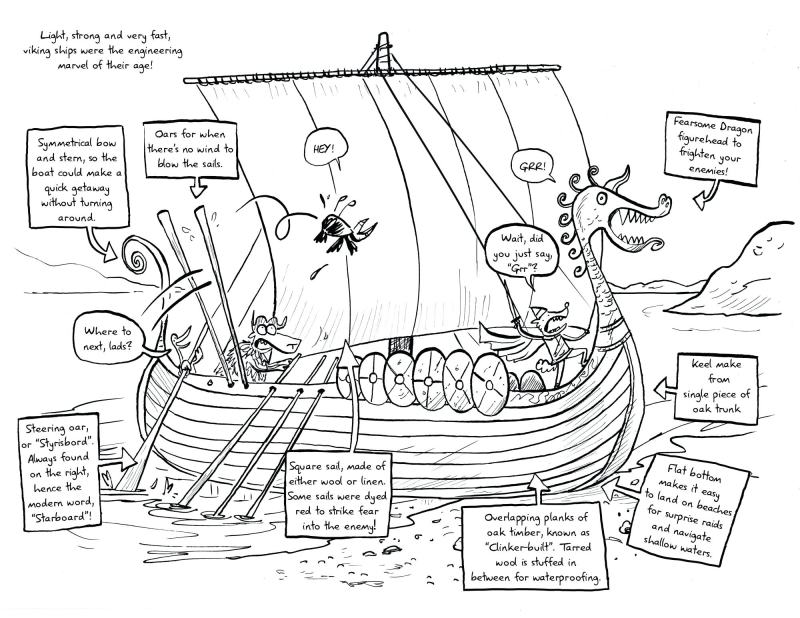 Light, strong and very fast,
viking ships were the engineering
marvel of their age!
Symmetrical bow
and stern, so the
boat could make a
quick getaway
without turning
around.
Oars for when
there's no wind to
blow the sails.
HEY!
GRR!
Fearsome Dragon
figurehead to
frighten your
enemies!
Wait, did
you just say,
"Grr"?
Where to
next, lads?
Keel make
from
single piece of
oak trunk
Steering oar,
or "Styrisbord".
Always found
on the right,
hence the
modern word,
"Starboard"!
Square sail, made of
either wool or linen.
Some sails were dyed
red to strike fear
into the enemy!
Overlapping planks of
oak timber, known as
"Clinker-built". Tarred
wool is stuffed in
between for waterproofing.
Flat bottom
makes it easy
to land on beaches
for surprise raids
and navigate
shallow waters.